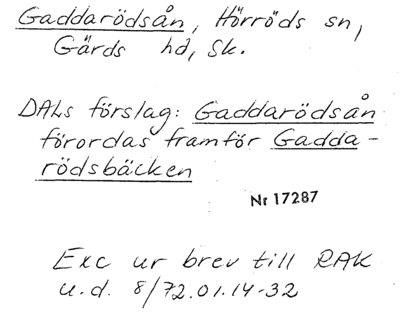 Gaddarödsån, Hörröds sn,
Gärds hd, Sk.
DALs förslag: Gaddarödsån
förordas framför Gadda-
rödsbäcken
Nr 17287
Exc ur brev till RAK
u.d. 8/72.01.14-32